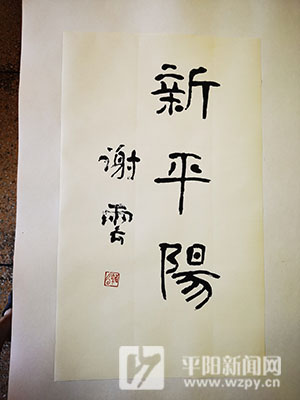 新平陽
謝雲
平阳新闻网
www.wzpy.cn